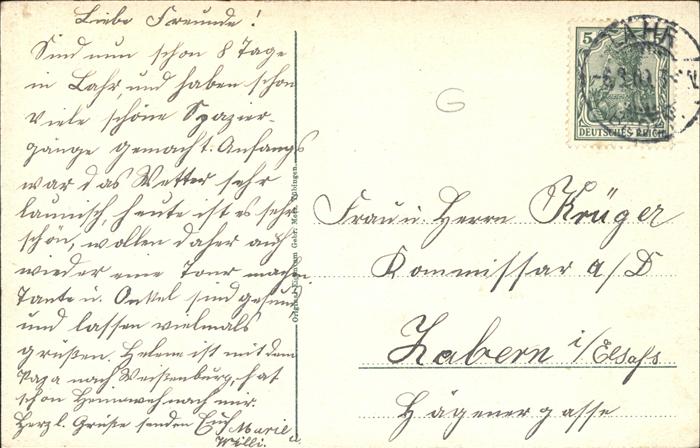 Liebe Freunde!
Sind nun schon 8 Tage
in Lahr und haben schon
viele schöne Spazier-
gänge gemacht. Anfangs
war das Wetter sehr
launisch, heute ist es sehr
schön, wollen daher auch
wieder eine Tour machen
Tante u. Onkel sind gesund
und lassen vielmals
grüßen. Helene ist mit dem
Papa nach Weißenburg, hat
schon Heimweh nach mir.
Herzl. Grüße senden Euch Marie
u. Willi.
Original-Eigentum Gebr. Metz, Tübingen.
G
5
LAHR
DEUTSCHES REICH
Frau u. Herrn Krüger
Kommissar a/D
Zabern i/Elsaß
Hägenergasse